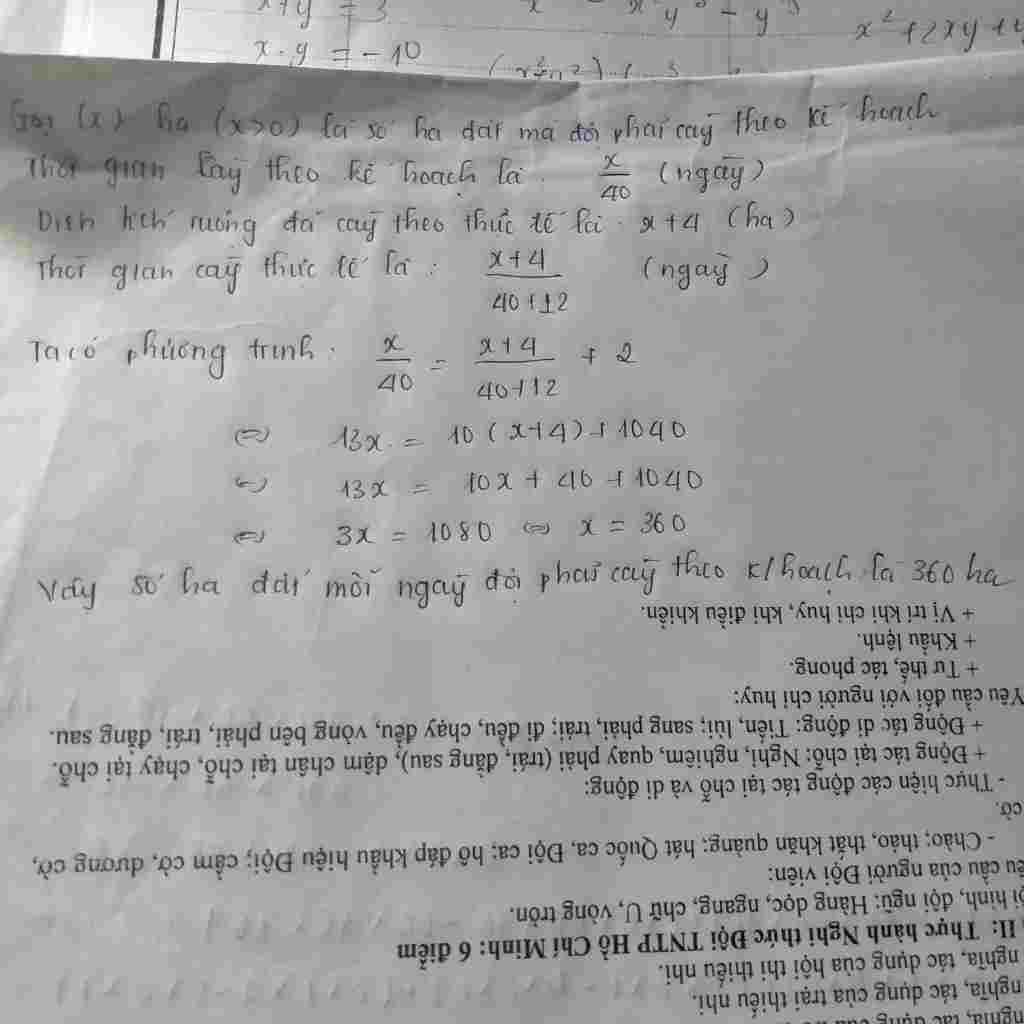 x+y = 3
x.y = -10
x² + 2xy +
Gọi (x) ha (x>0) là số ha đất mà đội phải cày theo kế hoạch
Thời gian cày theo kế hoạch là: x/40 (ngày)
Diện tích ruộng đã cày theo thực tế là: x+4 (ha)
Thời gian cày thực tế là: (x+4)/(40+12) (ngày)
Ta có phương trình: x/40 = (x+4)/(40+12) + 2
⇔ 13x = 10(x+4)+1040
⇔ 13x = 10x + 40 + 1040
⇔ 3x = 1080 ⇔ x = 360
Vậy số ha đất mỗi ngày đội phải cày theo k/hoạch là 360 ha
+ Vị trí khi chỉ huy, khi điều khiển.
+ Khẩu lệnh.
+ Tư thế, tác phong.
Yêu cầu đối với người chỉ huy:
+ Động tác di động: Tiến, lùi; sang phải, trái; đi đều, chạy đều, vòng bên phải, trái, đằng sau.
+ Động tác tại chỗ: Nghỉ, nghiêm, quay phải (trái, đằng sau), dậm chân tại chỗ, chạy tại chỗ.
- Thực hiện các động tác tại chỗ và di động:
cờ.
- Chào; tháo, thắt khăn quàng; hát Quốc ca, Đội ca; hô đáp khẩu hiệu Đội; cầm cờ, dương cờ,
cầu của người Đội viên:
hình, đội ngũ: Hàng dọc, ngang, chữ U, vòng tròn.
II: Thực hành Nghi thức Đội TNTP Hồ Chí Minh: 6 điểm
nghĩa, tác dụng của hội thi thiếu nhi.
nghĩa, tác dụng của trại thiếu nhi.
nghĩa, tác dụng của